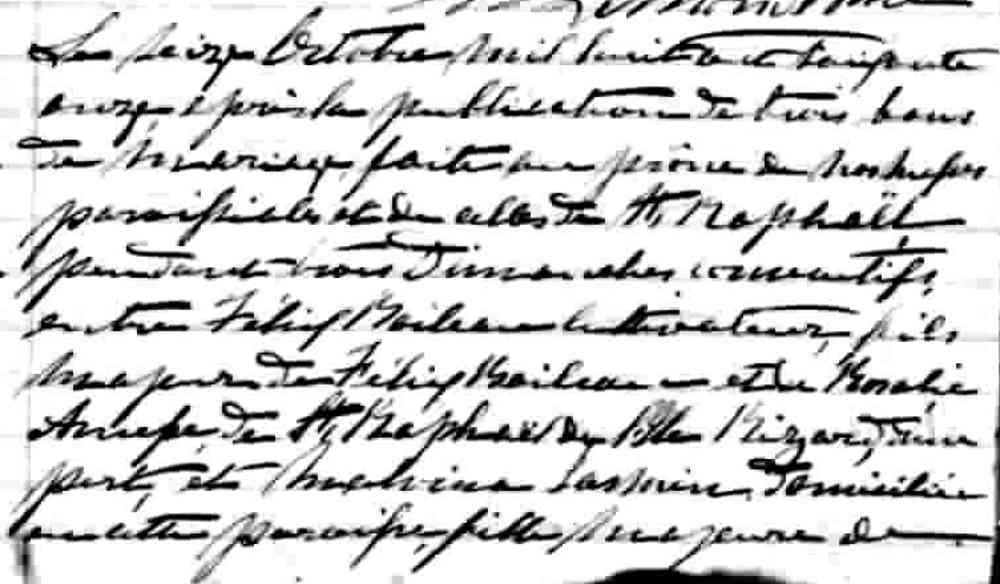 Le seize Octobre mil huit cent soixante
onze après la publication de trois bans
de mariage faite au prône de nos messes
paroissiales et de celles de St Raphaël
pendant trois Dimanches consecutifs,
entre Félix Boileau cultivateur, fils
majeur de Félix Boileau et de Rosalie
de St Raphaël de l'Ile Bizard, d'une
part, et Malvina domiciliée
en cette paroisse, fille majeure de